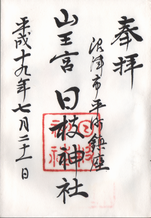 奉拝
沼津市平町鎮座
山王宮 日枝神社
平成十九年七月二十一日